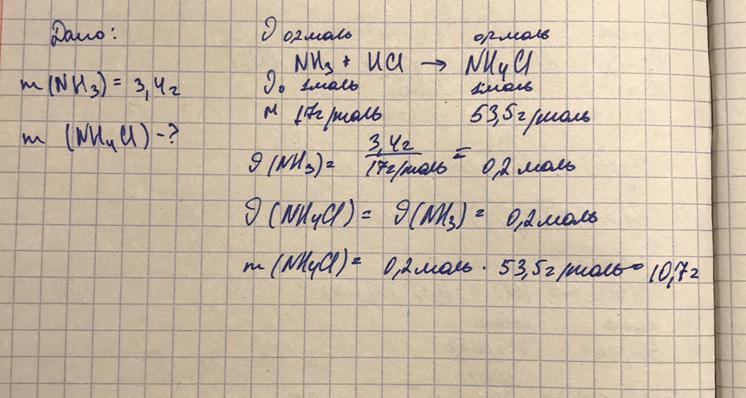 Дано:
m(NH3) = 3,4г
m (NH4Cl) -?
ϑ 0,2моль 0,2моль
NH3 + HCl → NH4Cl
ϑ0 1моль 1моль
M 17г/моль 53,5г/моль
ϑ(NH3)= 3,4г / 17г/моль = 0,2 моль
ϑ(NH4Cl) = ϑ(NH3) = 0,2моль
m(NH4Cl)= 0,2моль · 53,5г/моль= 10,7г